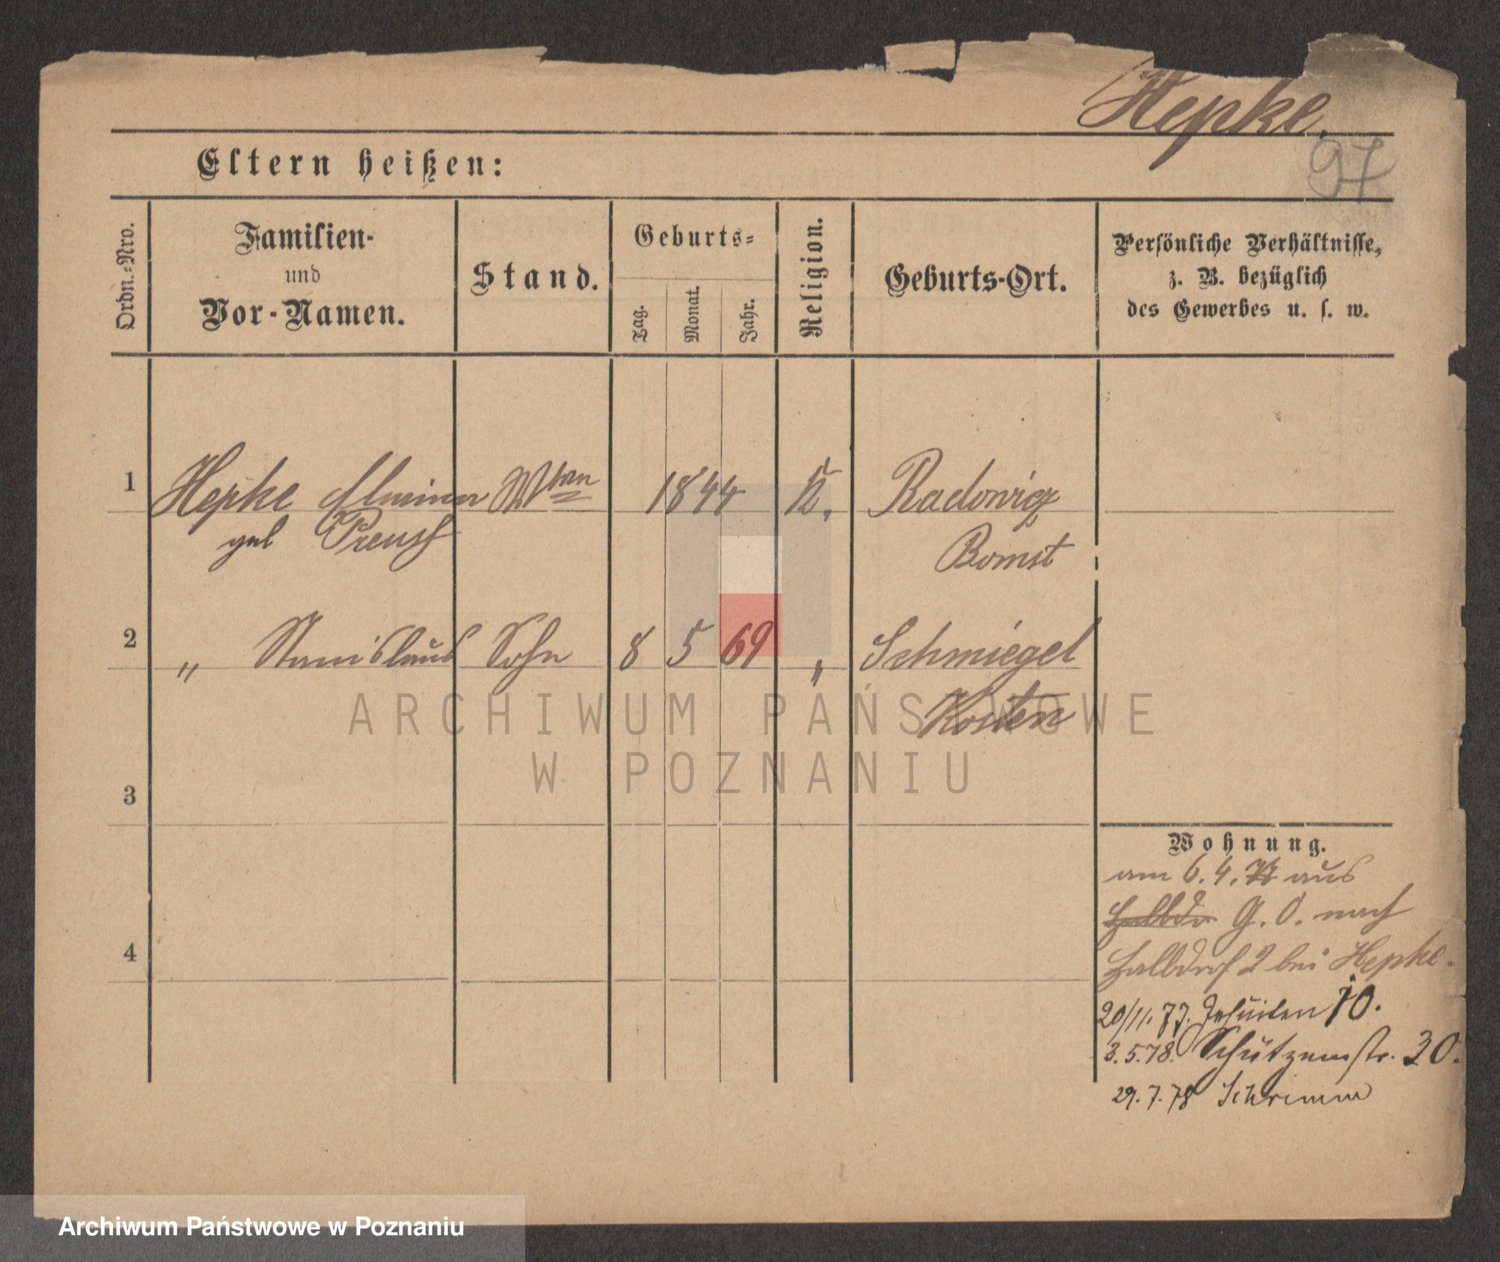 Hepke.
97
Eltern heißen:
Ordn.-Nro.
Familien-
und
Vor-Namen.
Stand.
Geburts-
Tag.
Monat.
Jahr.
Religion.
Geburts-Ort.
Persönliche Verhältnisse,
z. B. bezüglich
des Gewerbes u. s. w.
1 Hepke Wwn 1844 K. Radowicz
geb Preusch Bomst
2 „ Stanislaus Sohn 8 5 69 „ Schmiegel
Kosten
3
4
Wohnung.
am 6.4. aus
Halbdo G. O. nach
Halbdorf 2 bei Hepke.
20/11.77. Jesuiten 10.
3.5.78. Schützenstr. 30.
29.7.78 Schrimm
ARCHIWUM PAŃSTWOWE
W POZNANIU
Archiwum Państwowe w Poznaniu